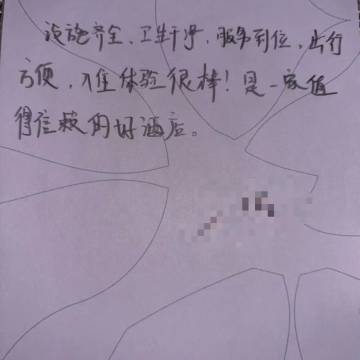 设施齐全、卫生干净,服务到位,出行
方便,入住体验很棒!是一家值
得信赖的好酒店。